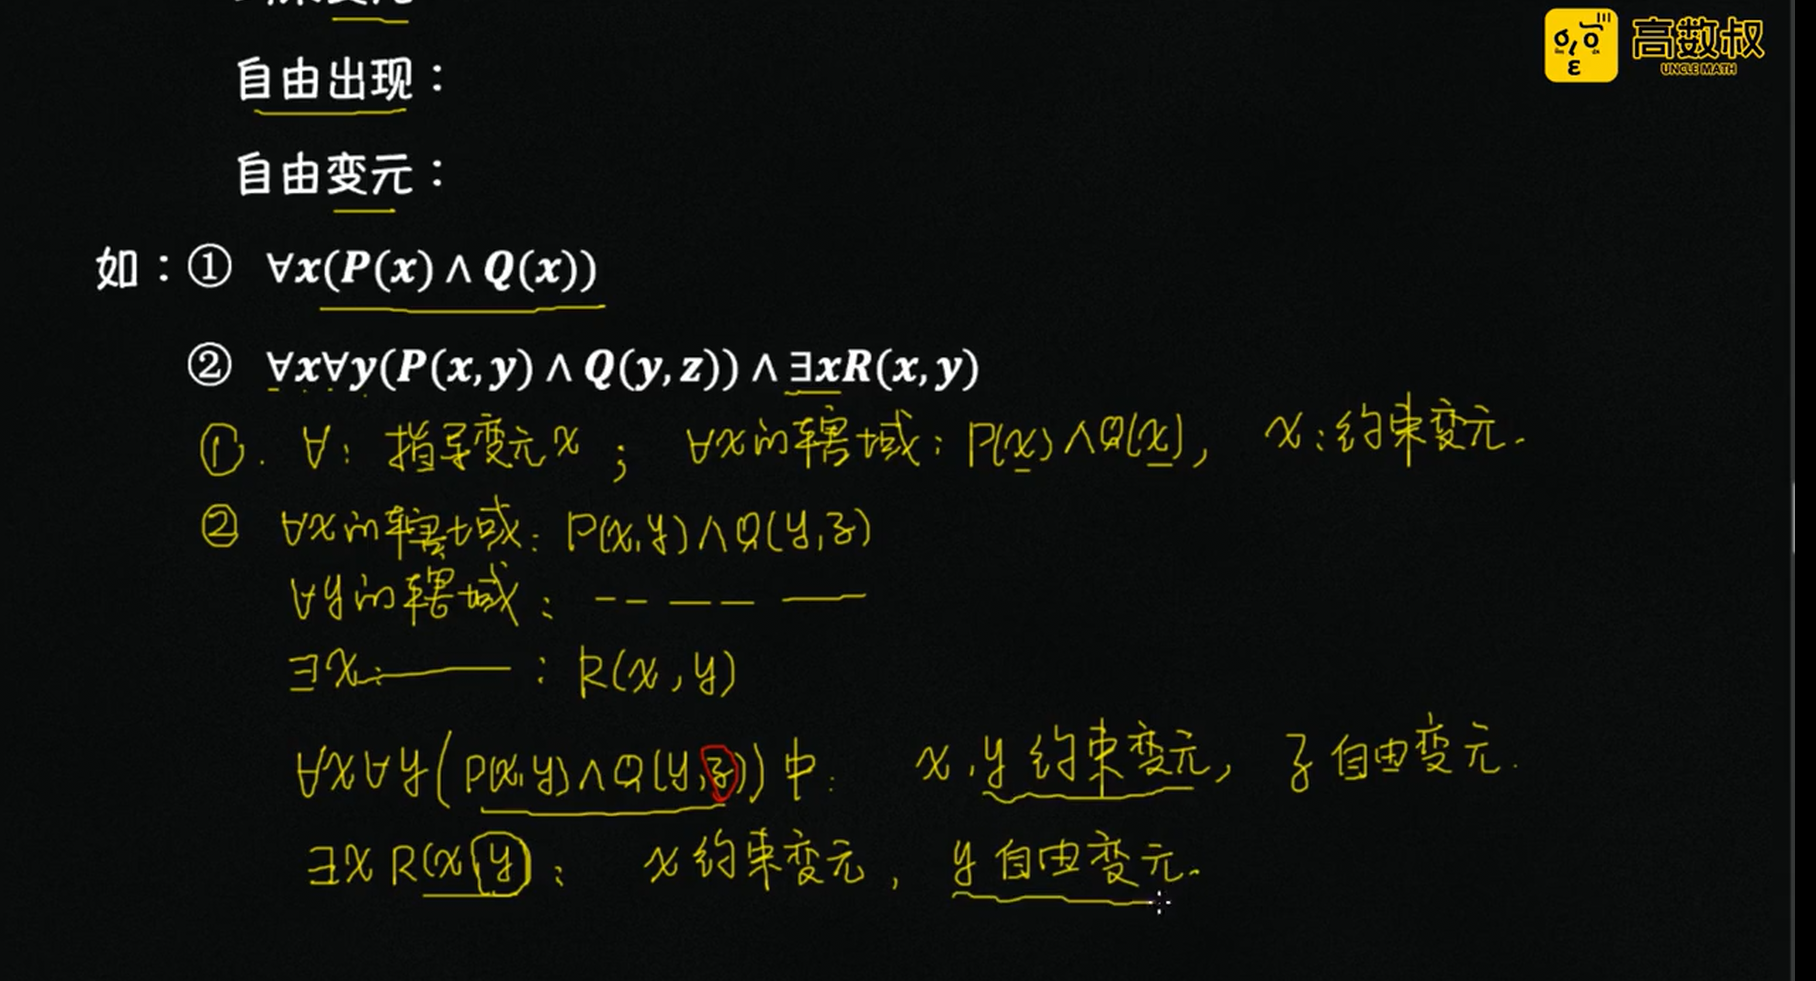 高数叔
UNCLE MATH
自由出现：
自由变元：
如：① ∀x(P(x) ∧ Q(x))
② ∀x∀y(P(x,y) ∧ Q(y,z)) ∧ ∃xR(x,y)
①. ∀: 指导变元x ; ∀x的辖域: P(x)∧Q(x), x:约束变元.
② ∀x的辖域: P(x,y)∧Q(y,z)
∀y的辖域:
∃x : R(x,y)
∀x∀y(P(x,y)∧Q(y,z))中: x,y约束变元, z自由变元.
∃xR(x,y): x约束变元, y自由变元.